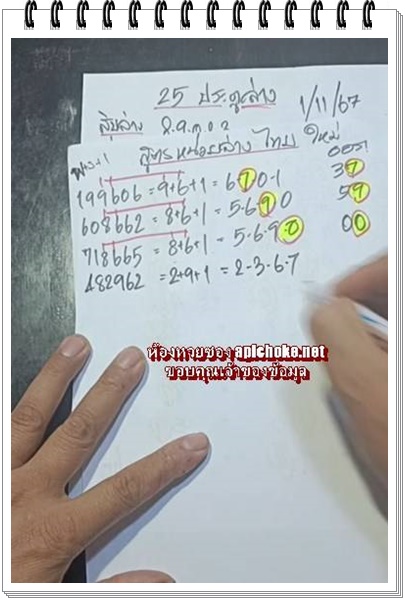 25 ประตูล่าง
1/11/67
สิบล่าง 8.9.0.2
สูตรหน่วยล่าง ไทย ใหม่
รางวัล 1
ออก
199606 = 9+6+1 = 6.7.0.1 37
608662 = 8+6+1 = 5.6.9.0 59
718665 = 8+6+1 = 5.6.9.0 00
482962 = 2+9+1 = 2-3-6-7
ห้องหวยซอง apichoke.net
ขอบคุณเจ้าของข้อมูล